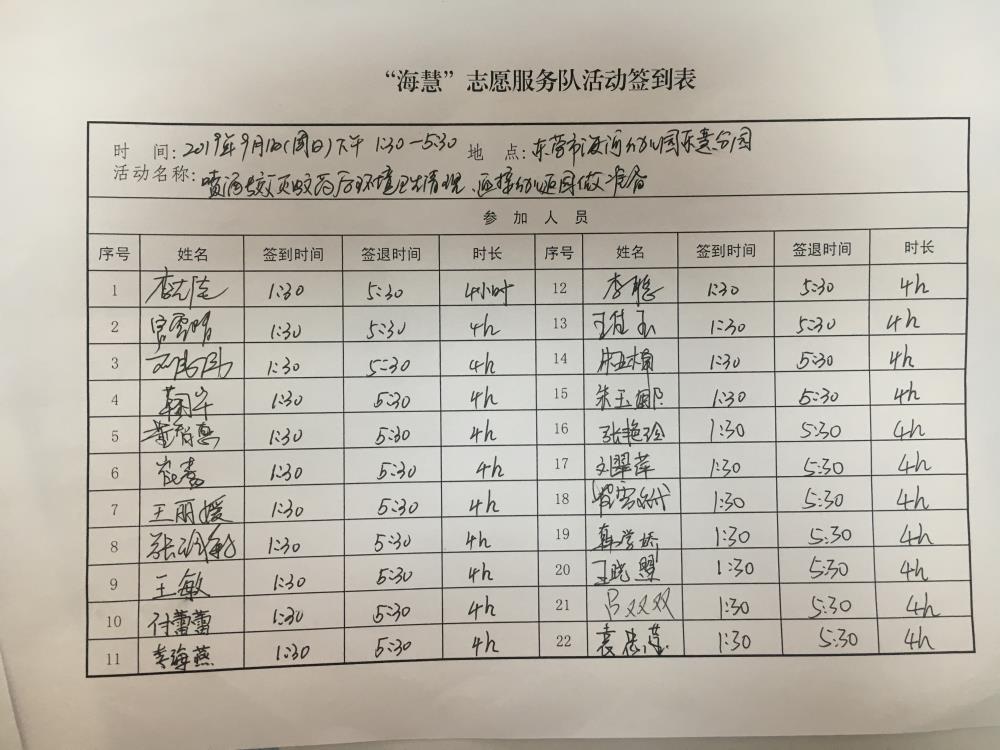 “海慧”志愿服务队活动签到表
时 间: 2019年9月1日(周日)下午 1:30—5:30 地 点: 东营市海河幼儿园东慧分园
活动名称: 环境卫生清理、迎接幼儿园做准备
参 加 人 员
序号 姓名 签到时间 签退时间 时长 序号 姓名 签到时间 签退时间 时长
1 1:30 5:30 4小时 12 李聪 1:30 5:30 4h
2 1:30 5:30 4h 13 王桂玉 1:30 5:30 4h
3 1:30 5:30 4h 14 1:30 5:30 4h
4 1:30 5:30 4h 15 朱玉娜 1:30 5:30 4h
5 董智慧 1:30 5:30 4h 16 张艳玲 1:30 5:30 4h
6 崔春 1:30 5:30 4h 17 刘翠萍 1:30 5:30 4h
7 王丽媛 1:30 5:30 4h 18 1:30 5:30 4h
8 1:30 5:30 4h 19 韩学娇 1:30 5:30 4h
9 王敏 1:30 5:30 4h 20 王晓盟 1:30 5:30 4h
10 付蕾蕾 1:30 5:30 4h 21 吕双双 1:30 5:30 4h
11 李海燕 1:30 5:30 4h 22 1:30 5:30 4h